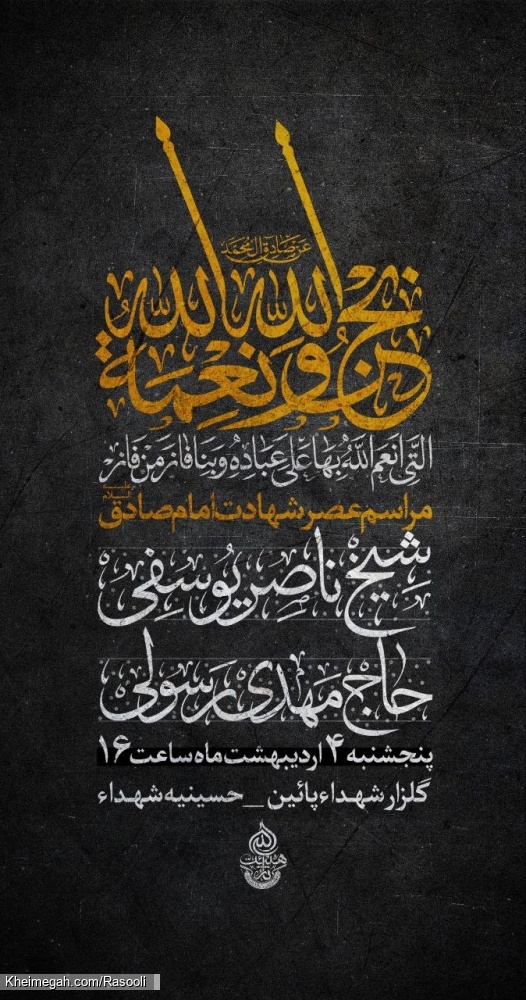 عَن صَادِقِ آلِ مُحَمَّد
نَحنُ وَاللّٰهِ نِعمَةُ اللّٰهِ
الَّتِی اَنعَمَ اللّٰهُ بِهَا عَلٰی عِبَادِهِ وَ بِنَا فَازَ مَن فَازَ
مراسم عصر شهادت امام صادق علیه السلام
شیخ ناصر یوسفی
حاج مهدی رسولی
پنجشنبه ۴ اردیبهشت ماه ساعت ۱۶
گلزار شهداء پائین _ حسینیه شهداء
Kheimegah.com/Rasooli